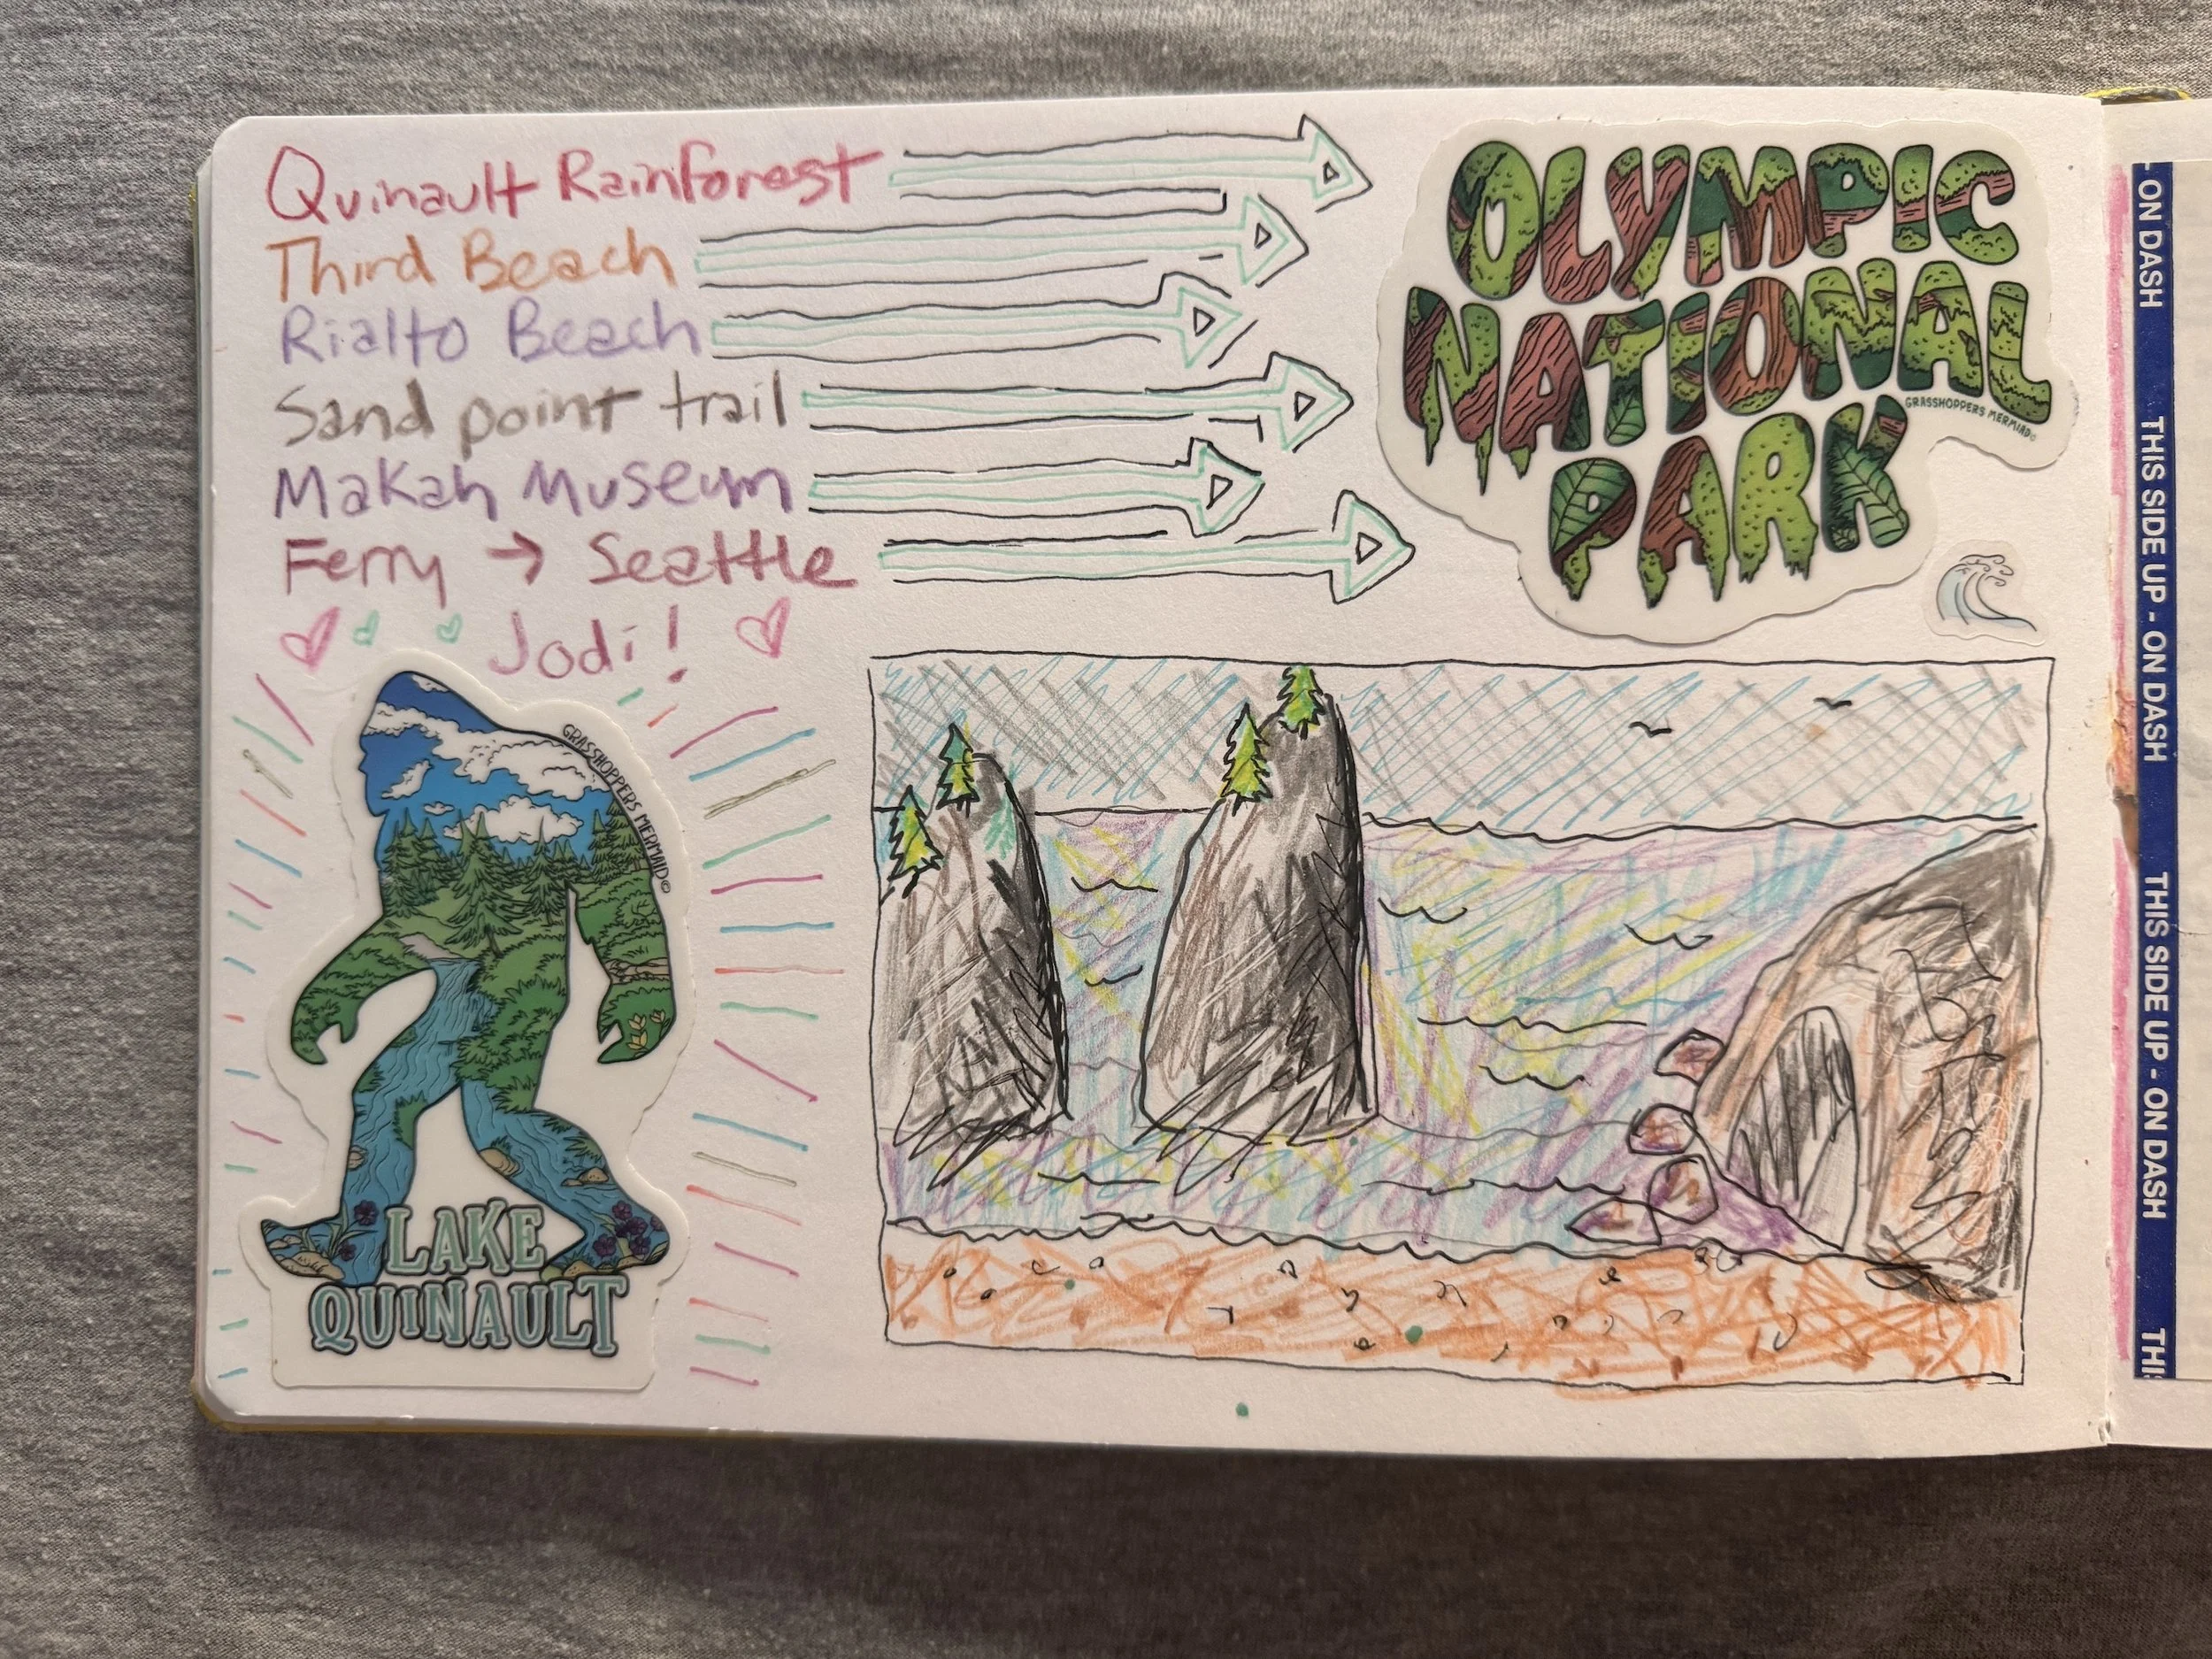 Quinault Rainforest
Third Beach
Rialto Beach
Sand point trail
Makah Museum
Ferry → Seattle
Jodi!
OLYMPIC
NATIONAL
PARK
GRASSHOPPERS MERMIAD©
GRASSHOPPERS MERMAID©
LAKE
QUINAULT
- ON DASH THIS SIDE UP - ON DASH THIS SIDE UP - ON DASH THIS